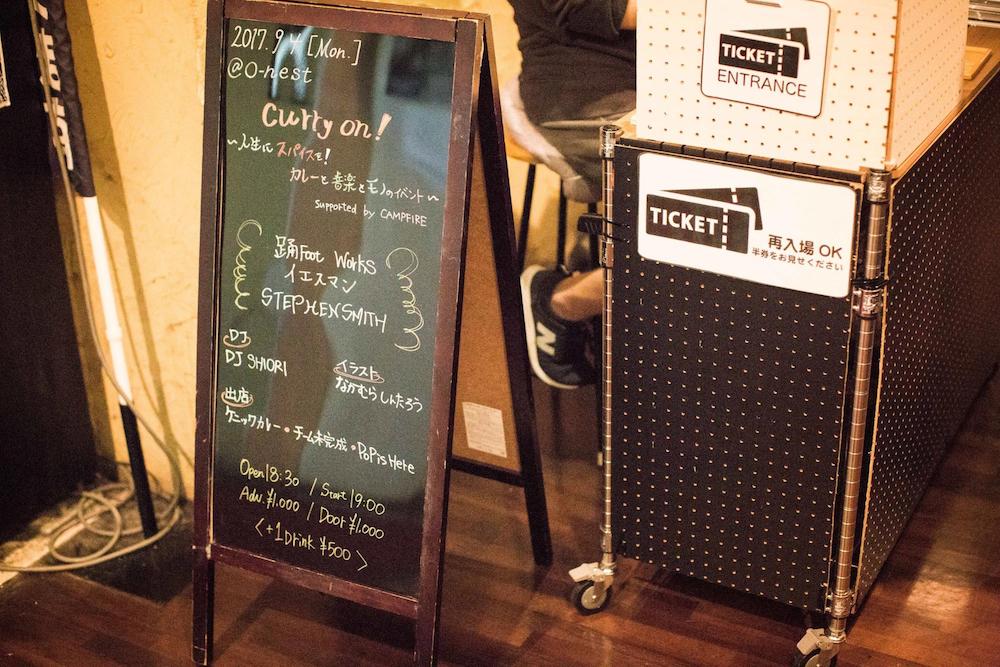 2017.9.4 [Mon.]
@O-nest
Curry on!
〜人生にスパイスを!
カレーと音楽とモノのイベント〜
Supported by CAMPFIRE
踊Foot Works
イエスマン
STEPHENSMITH
DJ
DJ SHIORI
イラスト
なかむらしんたろう
出店
ケニックカレー・チーム未完成・PoPisHere
Open18:30 / Start 19:00
Adv. ¥1.000 / Door ¥1.000
<+1Drink ¥500>
TICKET
ENTRANCE
TICKET
再入場 OK
半券をお見せください
N